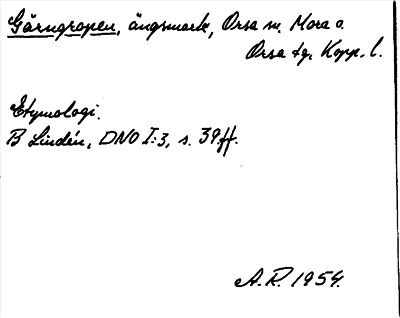 Gärngropen, ängsmark, Orsa sn. Mora o.
Orsa tg. Kopp. l.
Etymologi.
B Lindén, DNO I:3, s. 39ff.
A.R. 1954.